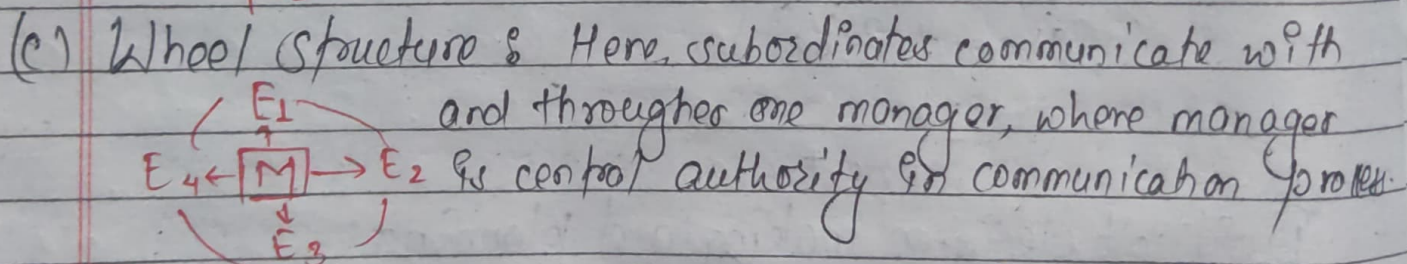 (c) Wheel Structure : Here, subordinates communicate with
E1 and througher one manager, where manager
E4 ← M → E2 is central authority in communication process.
E3